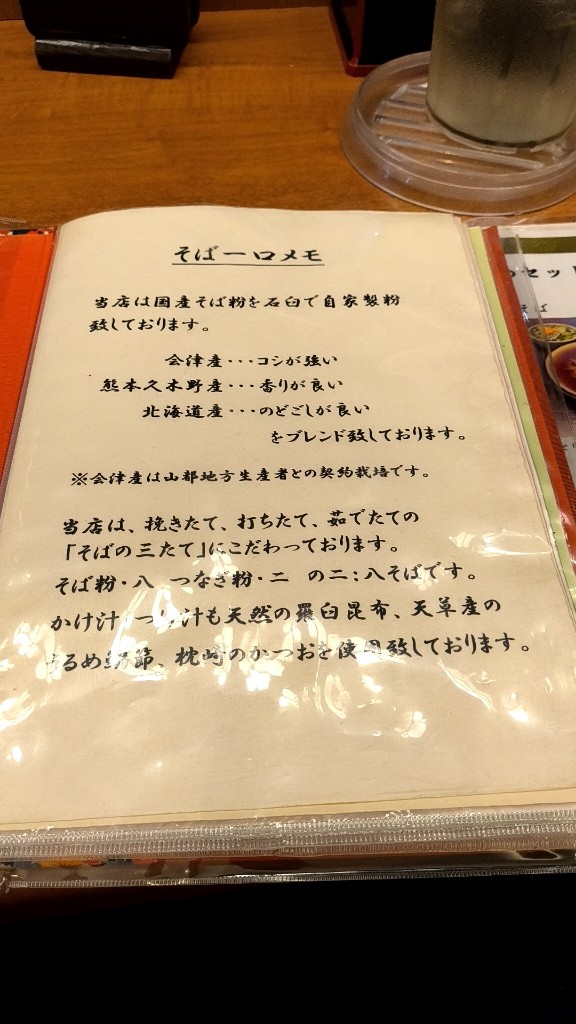 そば一口メモ
当店は国産そば粉を石臼で自家製粉
致しております。
会津産・・・コシが強い
熊本久木野産・・・香りが良い
北海道産・・・のどごしが良い
をブレンド致しております。
※会津産は山都地方生産者との契約栽培です。
当店は、挽きたて、打ちたて、茹でたての
「そばの三たて」にこだわっております。
そば粉・八 つなぎ粉・二 の二:八そばです。
かけ汁・つけ汁も天然の羅臼昆布、天草産の
うるめ鰯節、枕崎のかつおを使用致しております。
セット
そば